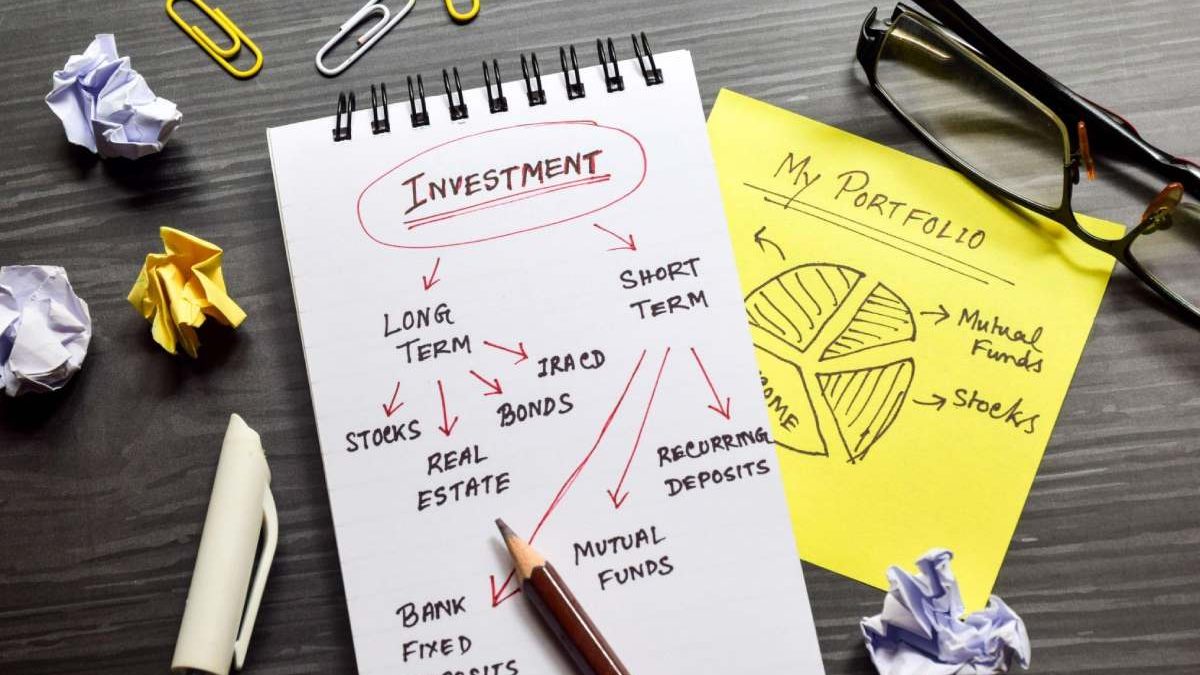 INVESTMENT
LONG
TERM
SHORT
TERM
STOCKS
REAL
ESTATE
BONDS
IRACD
BANK
FIXED
MUTUAL
FUNDS
RECURRING
DEPOSITS
My PORTFOLIO
Mutual
Funds
Stocks